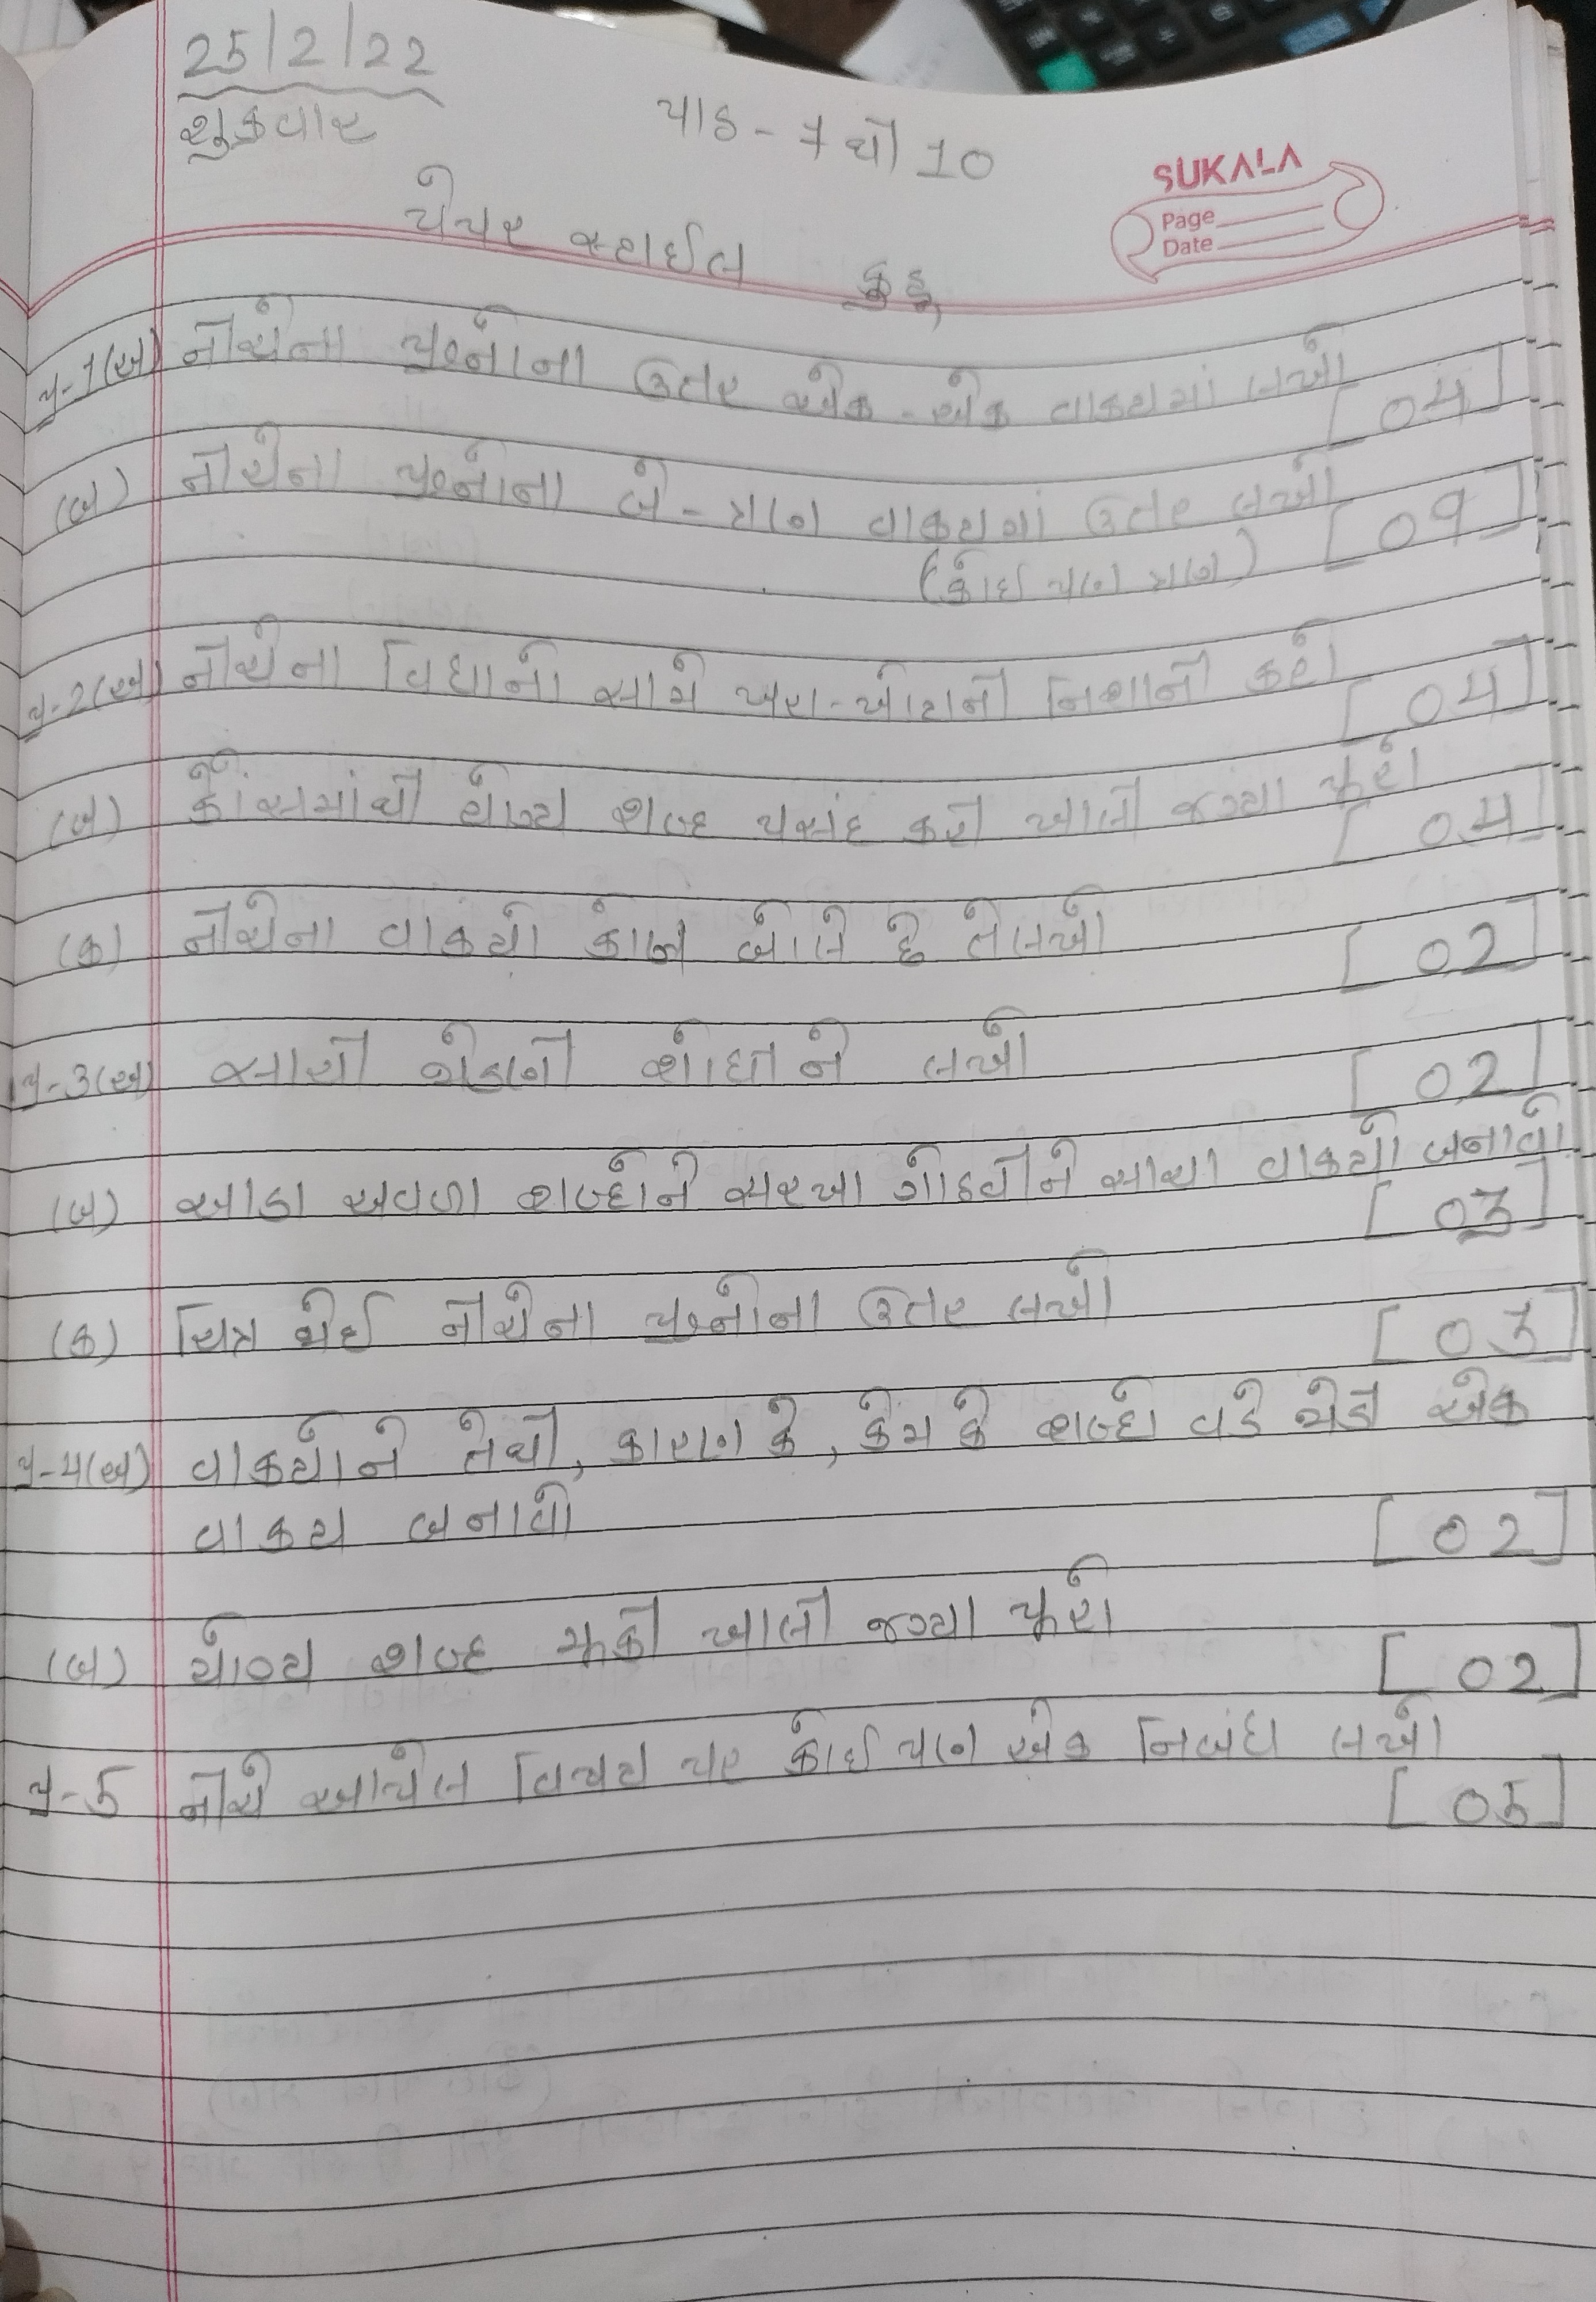 25/2/22
શુક્રવાર
પાઠ - 7 થી 10
SUKALA
Page
Date
પેપર સ્ટાઈલ કુહૂ
પ્ર-1(અ) નીચેના પ્રશ્નોના ઉતર એક-એક વાકયમાં લખો [04]
(બ) નીચેના પ્રશ્નોના બે - ત્રણ વાકયમાં ઉતર લખો [09]
(કોઈ પણ ત્રણ)
પ્ર-2(અ) નીચેના વિધાનો સામે ખરા-ખોટાની નિશાની કરો [04]
(બ) કૌંસમાંથી યોગ્ય શબ્દ પસંદ કરી ખાલી જગ્યા પૂરો [04]
(ક) નીચેના વાકયો કોણ બોલે છે તે લખો [02]
પ્ર-3(અ) સાચી જોડણી શોધીને લખો [02]
(બ) આડા અવળા શબ્દોને સરખા ગોઠવીને સાચા વાકયો બનાવો. [03]
(ક) ચિત્ર જોઈ નીચેના પ્રશ્નોના ઉતર લખો [03]
પ્ર-4(અ) વાકયોને તેથી, કારણ કે, કેમ કે શબ્દો વડે જોડી એક
વાકય બનાવો [02]
(બ) યોગ્ય શબ્દ મૂકી ખાલી જગ્યા પૂરો [02]
પ્ર-5 નીચે આપેલ વિષય પર કોઈ પણ એક નિબંધ લખો [05]